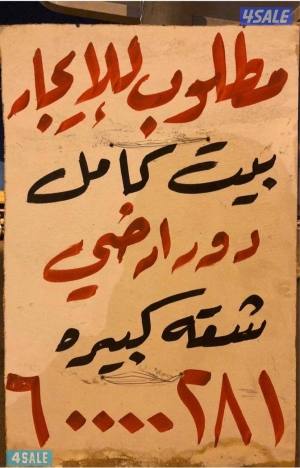 4SALE
مطلوب للإيجار
بيت كامل
دور ارضي
شقه كبيره
٦٠٠٠٠٢٨١
4SALE